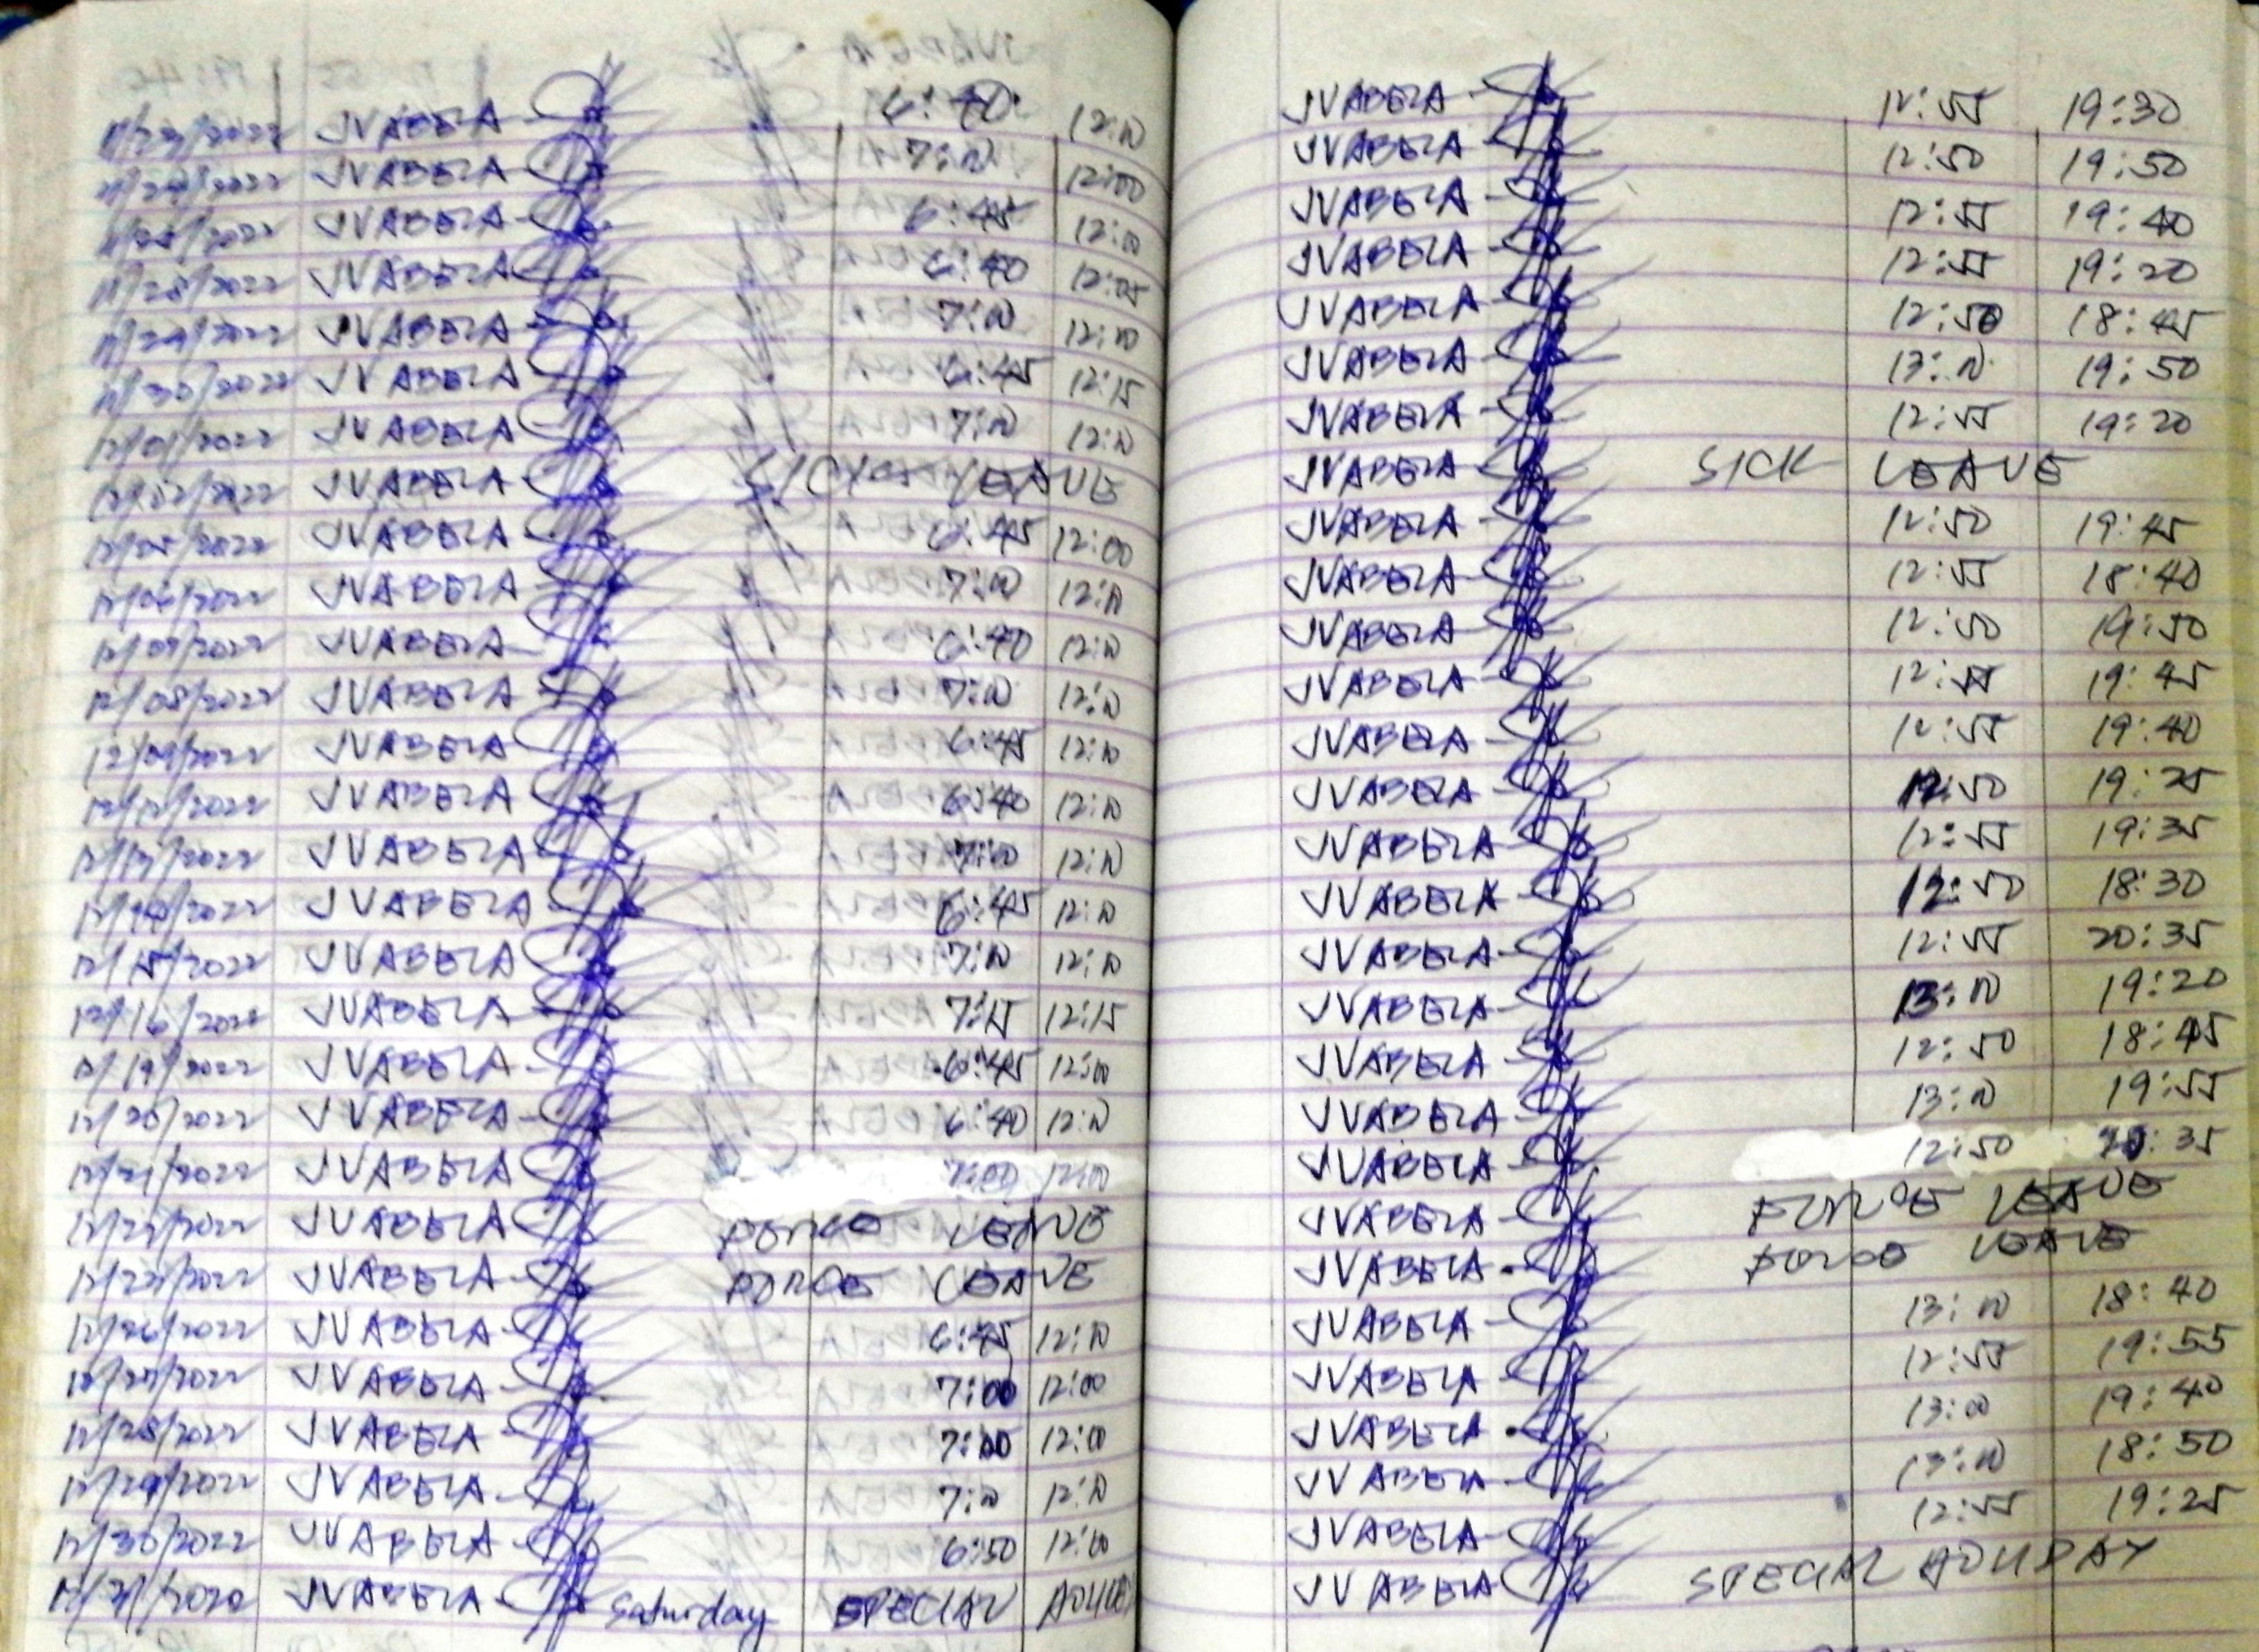 11/23/2022 JVABELA 6:40 12:00
11/24/2022 JVABELA 7:00 12:00
11/25/2022 JVABELA 6:45 12:00
11/28/2022 JVABELA 6:40 12:05
11/29/2022 JVABELA 7:00 12:00
11/30/2022 JVABELA 6:45 12:15
12/01/2022 JVABELA 7:00 12:00
12/02/2022 JVABELA SICK LEAVE
12/05/2022 JVABELA 6:45 12:00
12/06/2022 JVABELA 7:00 12:00
12/07/2022 JVABELA 6:40 12:00
12/08/2022 JVABELA 7:00 12:00
12/09/2022 JVABELA 6:45 12:00
12/12/2022 JVABELA 6:40 12:00
12/13/2022 JVABELA 7:00 12:00
12/14/2022 JVABELA 6:45 12:00
12/15/2022 JVABELA 7:00 12:00
12/16/2022 JVABELA 7:15 12:15
12/19/2022 JVABELA 6:45 12:00
12/20/2022 JVABELA 6:40 12:00
12/21/2022 JVABELA 7:00 12:00
12/22/2022 JVABELA FORCE LEAVE
12/23/2022 JVABELA FORCE LEAVE
12/26/2022 JVABELA 6:45 12:00
12/27/2022 JVABELA 7:00 12:00
12/28/2022 JVABELA 7:00 12:00
12/29/2022 JVABELA 7:00 12:00
12/30/2022 JVABELA 6:50 12:00
JVABELA Saturday SPECIAL
JVABELA 12:55 19:30
JVABELA 12:50 19:50
JVABELA 12:55 19:40
JVABELA 12:55 19:20
JVABELA 12:50 18:45
JVABELA 13:00 19:50
JVABELA 12:55 19:20
JVABELA SICK LEAVE
JVABELA 12:50 19:45
JVABELA 12:55 18:40
JVABELA 12:50 19:50
JVABELA 12:55 19:45
JVABELA 12:55 19:40
JVABELA 12:50 19:25
JVABELA 12:55 19:35
JVABELA 12:50 18:30
JVABELA 12:55 20:35
JVABELA 13:00 19:20
JVABELA 12:50 18:45
JVABELA 13:00 19:55
JVABELA 12:50
JVABELA FORCE LEAVE
JVABELA FORCE LEAVE
JVABELA 13:00 18:40
JVABELA 12:55 19:55
JVABELA 13:00 19:40
JVABELA 13:00 18:50
JVABELA 12:55 19:25
JVABELA SPECIAL HOLIDAY